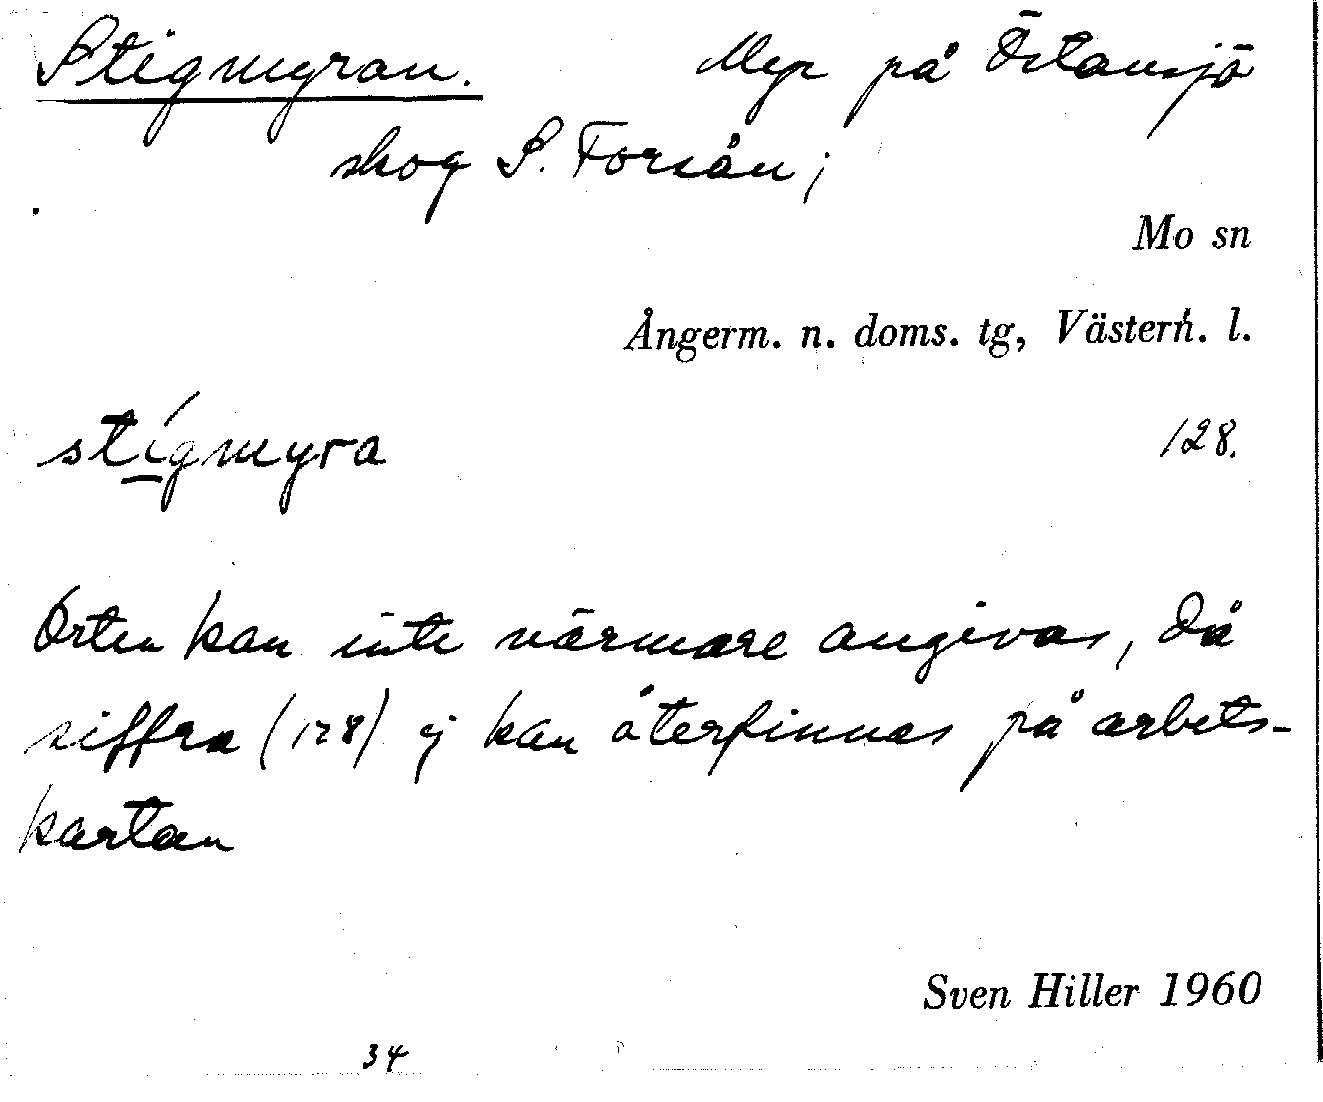 Stigmyran. Myr på Östansjö
skog S. Forsån;
Mo sn
Ångerm. n. doms. tg, Västern. l.
stígmyra 128.
Orten kan inte närmare angivas, då
siffra (128) ej kan återfinnas på arbets-
kartan
Sven Hiller 1960
34